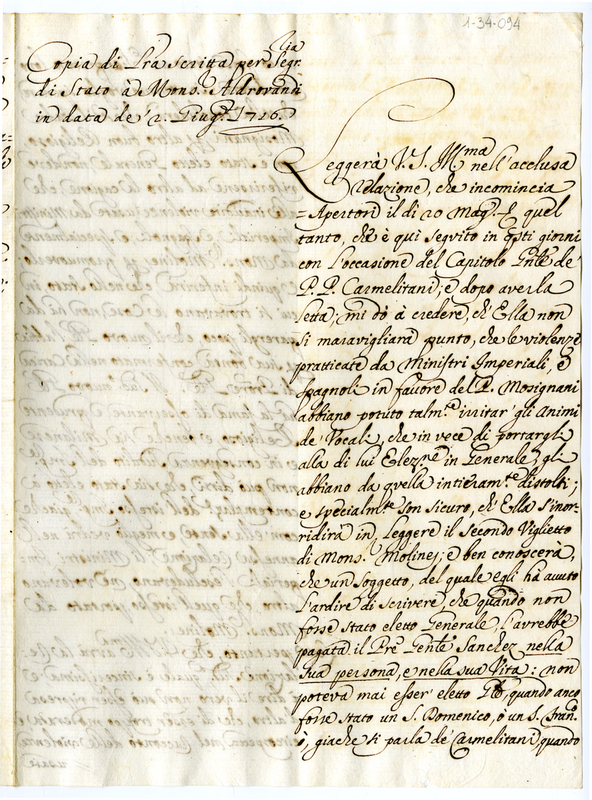 1-34-094
Copia di Lra scritta per Segr.ria
di Stato à Mons.r Aldrovandi
in data de' 2. Giug.o 1716.
Leggerà V. S. Ill.ma nell'acclusa
Relazione, che incomincia
= Apertosi il dì 20 Mag.o = quel
tanto, che è qui seguito in q̃sti giorni
con l'occasione del Capitolo Gnãle de'
P. P. Carmelitani; e dopo averla
letta, mi dò à credere, ch'Ella non
si maraviglierà punto, che le violenze
pratticate da Ministri Imperiali, e
Spagnoli in favore del P. Mosignani
abbiano potuto talm.te irritar gli Animi
de' Vocali, che in vece di portargli
alla di lui Elezne in Generale, gli
abbiano da quella intieram.te distolti;
e specialm.te son sicuro, ch'Ella s'inor-
ridirà in leggere il secondo Viglietto
di Mons.r Molines; e ben conoscerà,
che un soggetto, del quale egli hà avuto
l'ardire di scrivere, che quando non
fosse stato eletto Generale l'avrebbe
pagata il Pre Genle Sanchez nella
sua persona, e nella sua Vita: non
poteva mai esser eletto Gle, quando anco
fosse stato un S. Domenico, ò un S. Fran.co
ò, giache si parla de' Carmelitani, quando